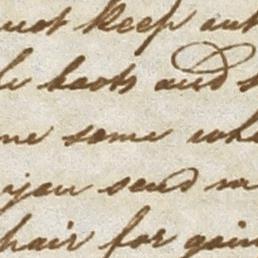 not keep out
boots and s
me some whe
you send m
hair for goin